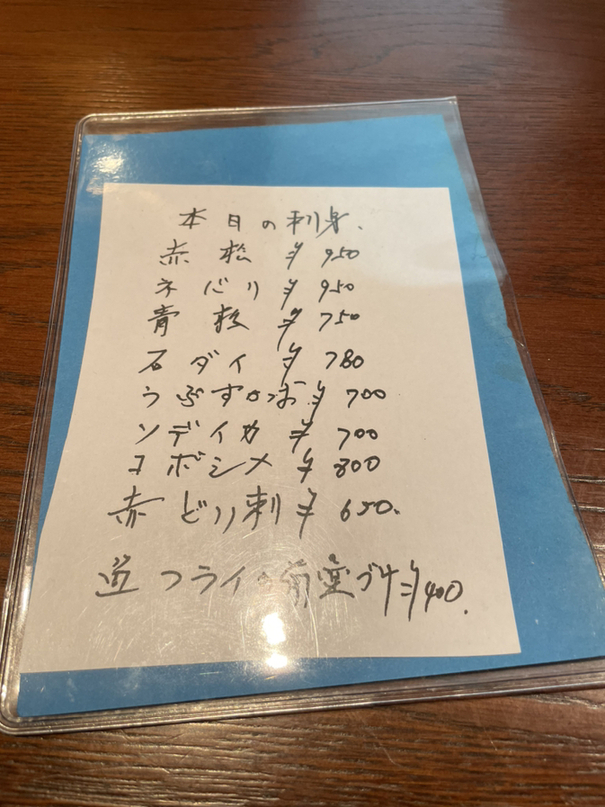 本日の刺身、
赤松 ¥950
ネバリ ¥950
青松 ¥750
石ダイ ¥780
うぶすかつお ¥700
ソデイカ ¥700
コボシメ ¥800
赤どり刺 ¥650.
フライ ¥400.